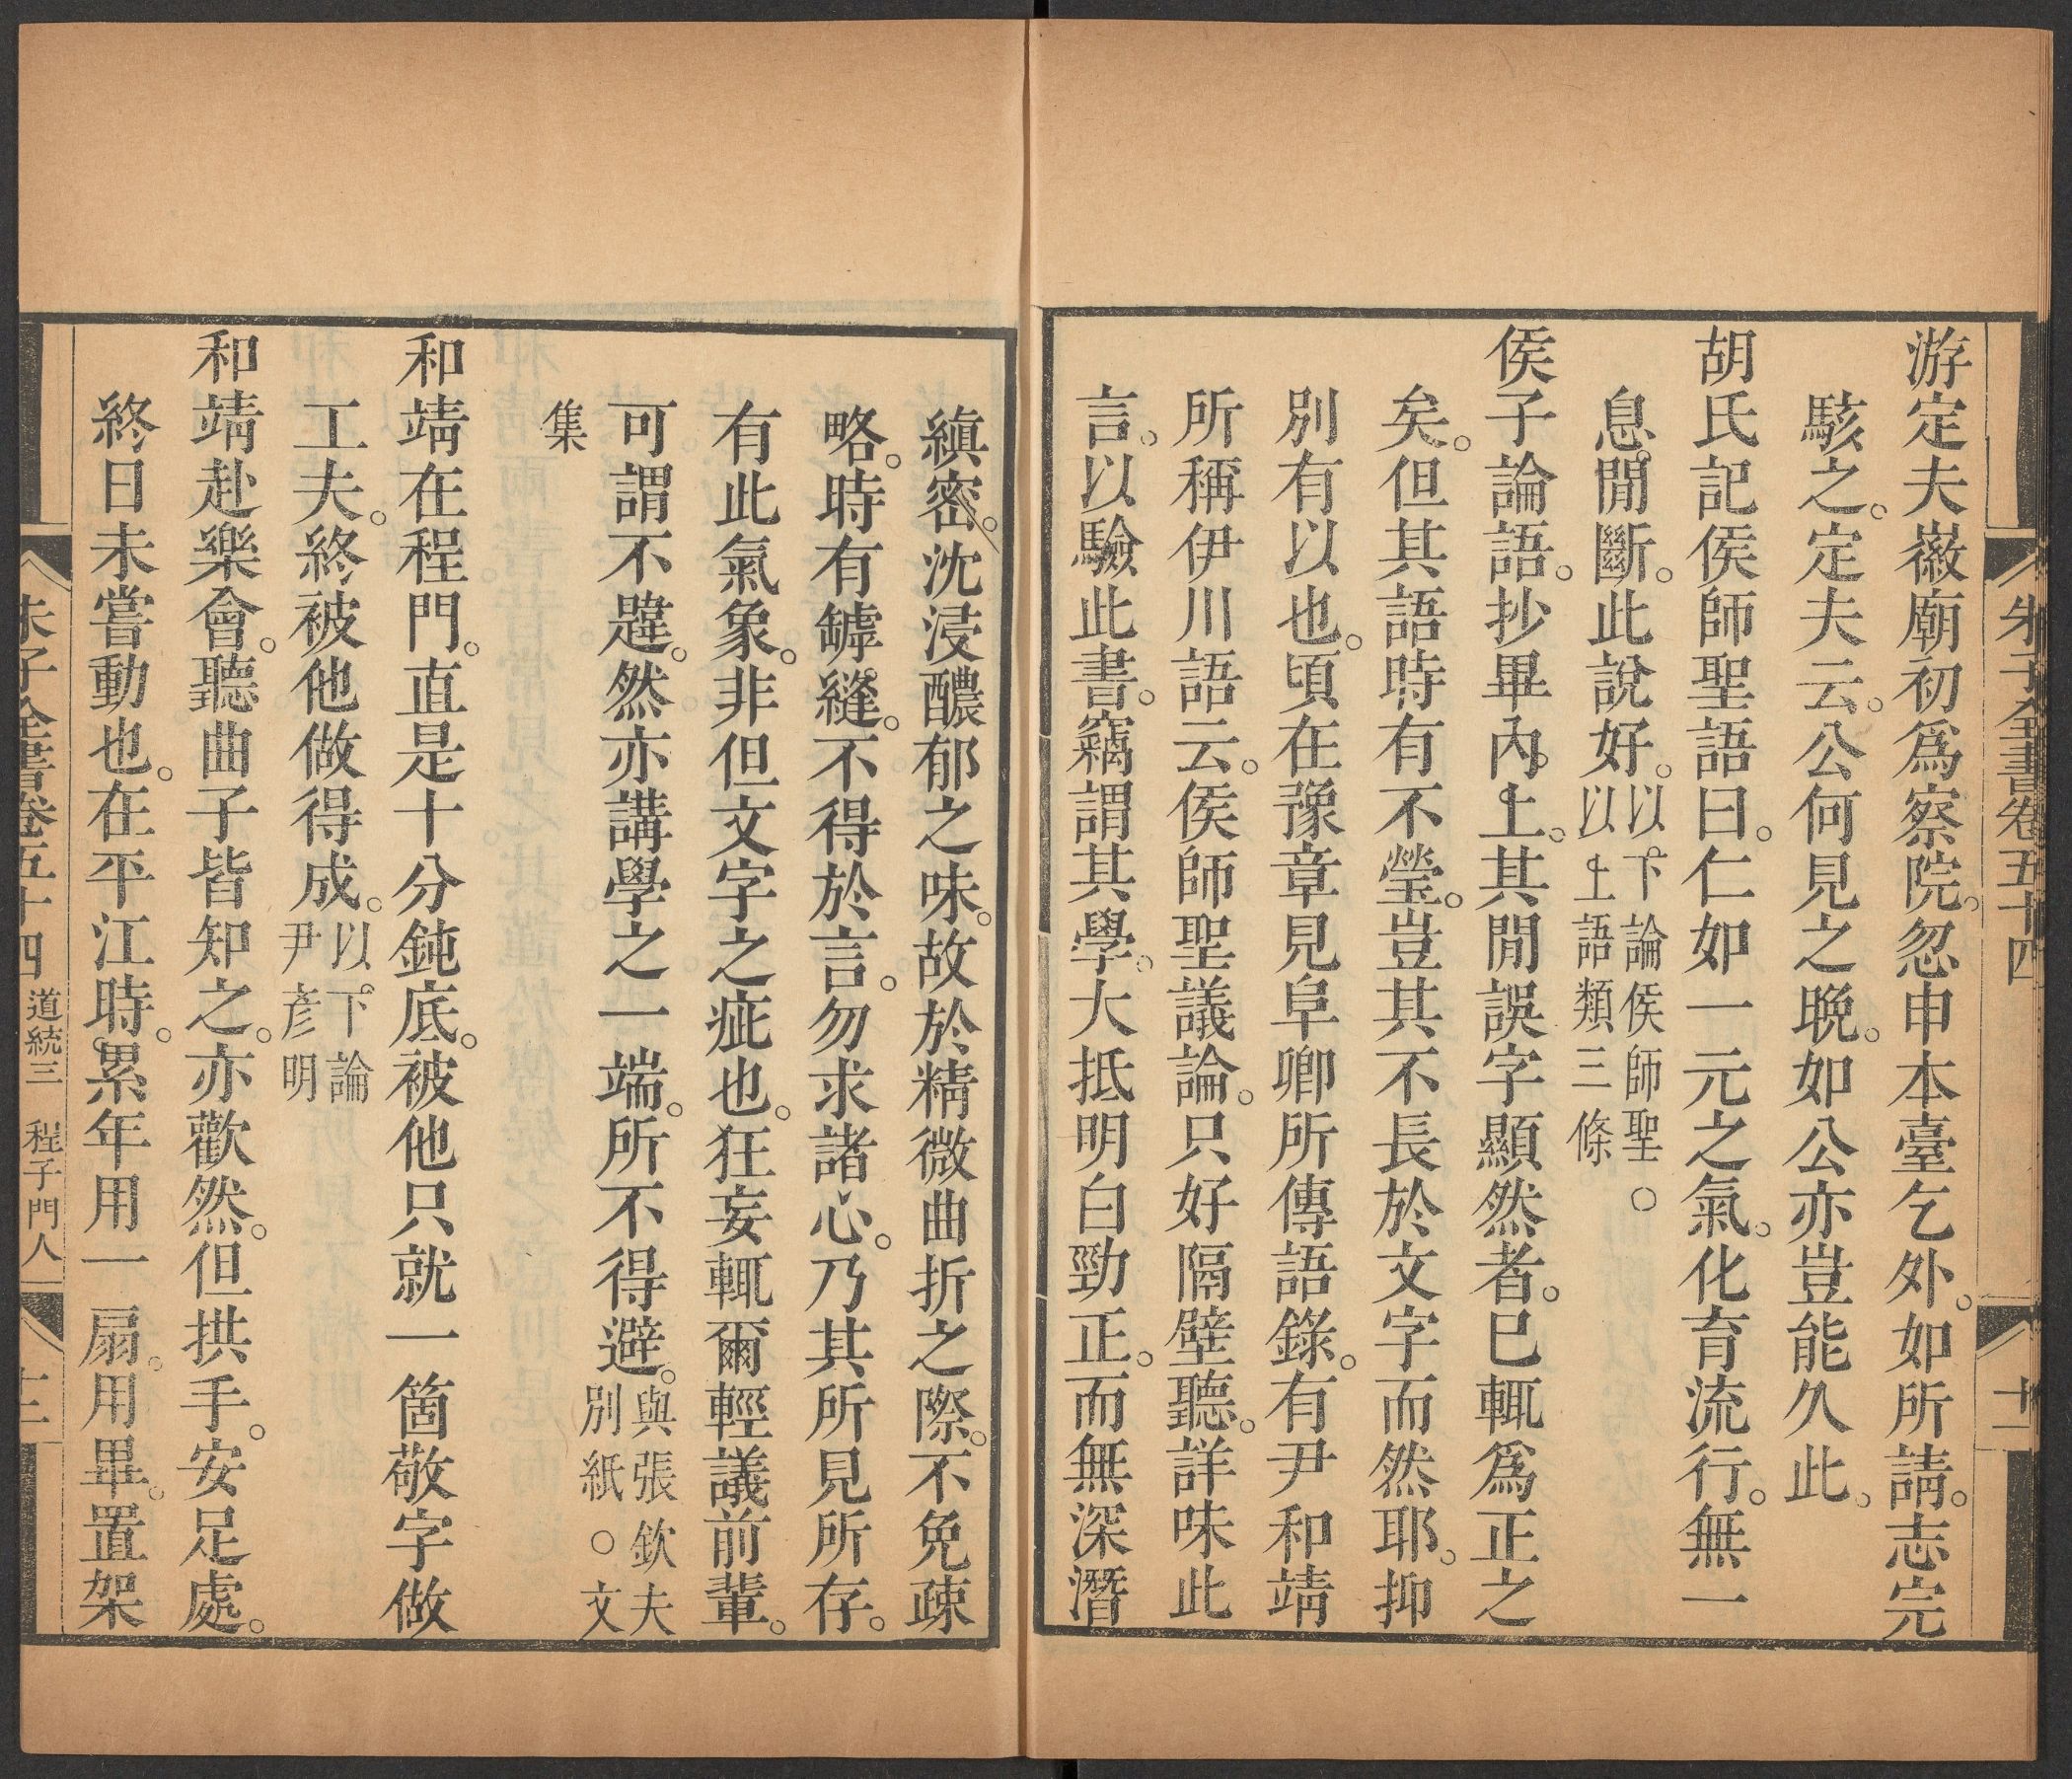 朱子全書卷五十四 十一
游定夫徽廟初爲察院。忽申本臺乞外。如所請。志完
駭之。定夫云。公何見之晩。如公亦豈能久此。
胡氏記侯師聖語曰。仁如一元之氣。化育流行。無一
息閒斷。此說好。以下論侯師聖。○
以上語類三條
侯子論語。抄畢內上。其閒誤字顯然者。已輒爲正之
矣。但其語時有不瑩。豈其不長於文字而然耶。抑
別有以也。頃在豫章見阜卿所傳語錄。有尹和靖
所稱伊川語云。侯師聖議論。只好隔壁聽。詳味此
言。以驗此書。竊謂其學。大抵明白勁正。而無深潛
縝密。沈浸醲郁之味。故於精微曲折之際。不免疎
略。時有罅縫。不得於言。勿求諸心。乃其所見所存。
有此氣象。非但文字之疵也。狂妄輒爾輕議前輩。
可謂不韙。然亦講學之一端。所不得避。與張欽夫
別紙○文
集
和靖在程門。直是十分鈍底。被他只就一箇敬字做
工夫。終被他做得成。以下論
尹彥明
和靖赴樂會。聽曲子皆知之。亦歡然。但拱手。安足處。
終日未嘗動也。在平江時。累年用一扇。用畢。置架
朱子全書卷五十四 道統三 程子門人 十二